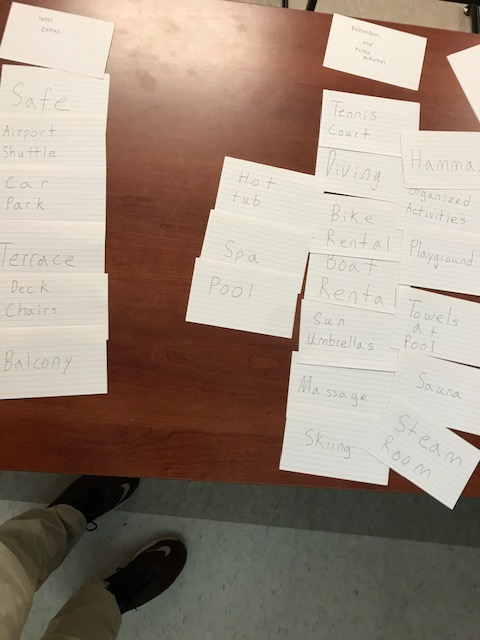 Hotel
Extras
Safe
Airport
Shuttle
Car
Park
Terrace
Deck
Chairs
Balcony
Relaxation,
and
activities
Hot
tub
Spa
Pool
Tennis
Court
Diving
Bike
Rental
Boat
Rental
Sun
Umbrellas
Massage
Skiing
Hamma
Organized
Activities
Playground
Towels
at
Pool
Sauna
Steam
Room